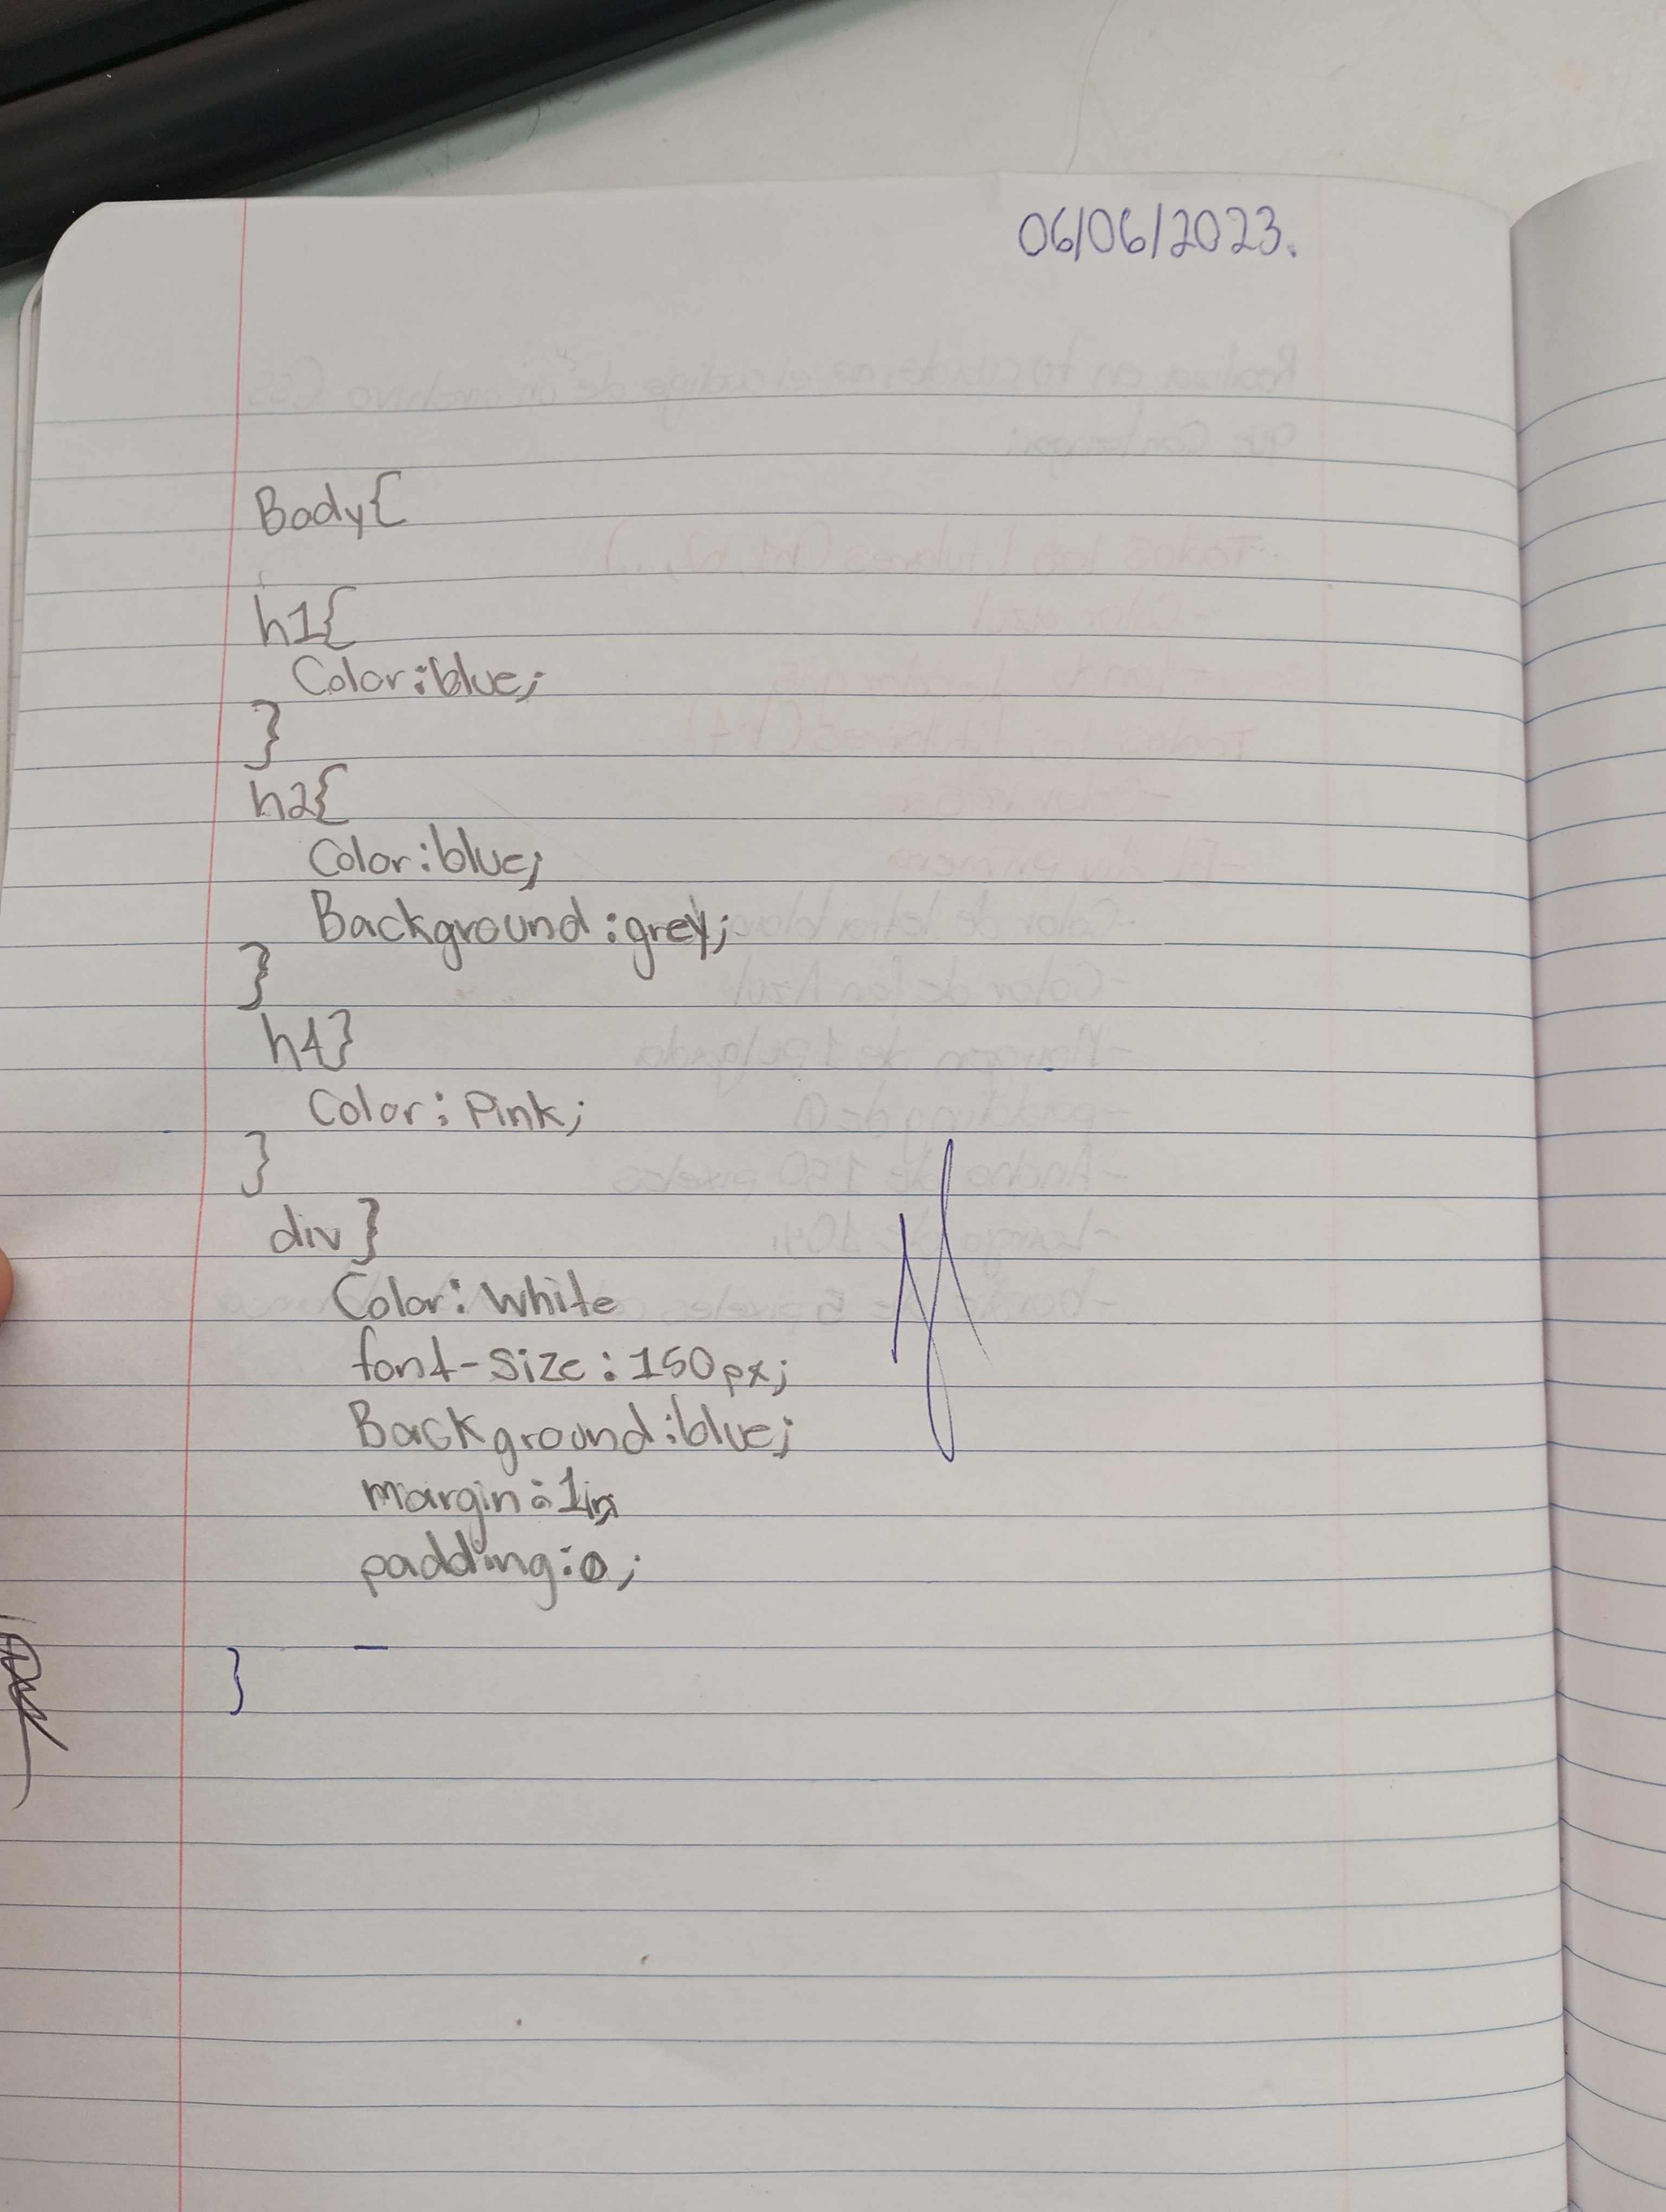 06/06/2023.
Body{
h1{
Color:blue;
}
h2{
Color:blue;
Background:grey;
}
h4}
Color: Pink;
}
div}
Color: White
font-size: 150px;
Background:blue;
margin:1in
padding:0;
}